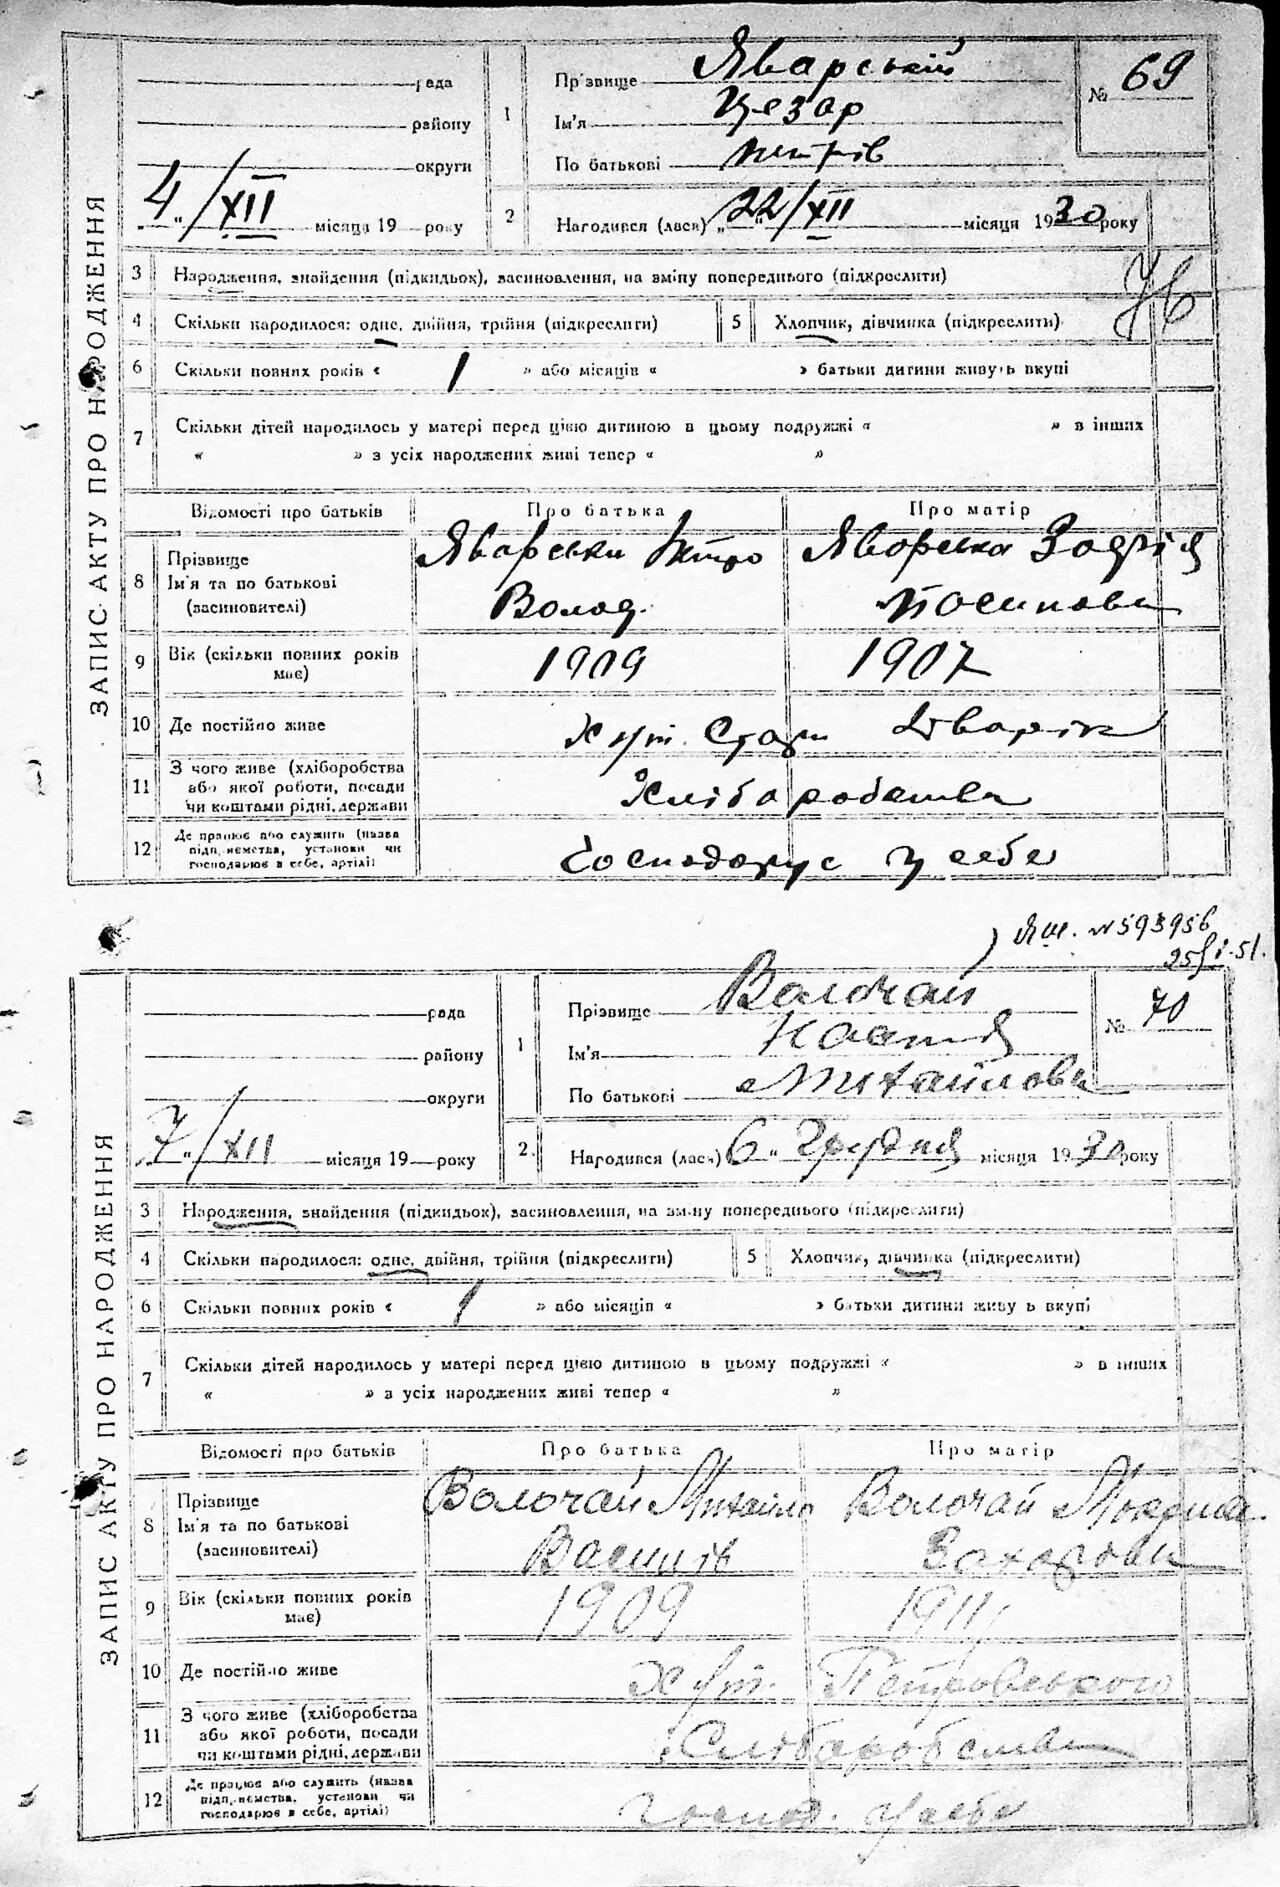 ЗАПИС АКТУ ПРО НАРОДЖЕННЯ
рада
району
округи
4 " /XII місяця 19 року
1
Прізвище Яварський
Ім'я Цезар
По батькові Петрів
№ 69
2
Народився (лася) " 22 " /XII місяця 1930 року
3 Народження, знайдення (підкидьок), засиновлення, на зміну попереднього (підкреслити)
4 Скільки народилося: одне, двійня, трійня (підкреслити) 5 Хлопчик, дівчинка (підкреслити)
6 Скільки повних років « 1 » або місяців « » батьки дитини живуть вкупі
7 Скільки дітей народилось у матері перед цією дитиною в цьому подружжі « » в інших
« » з усіх народжених живі тепер « »
Відомості про батьків Про батька Про матір
8 Прізвище
Ім'я та по батькові
(засиновителі)
Яварськи Петро
Волод.
Яворська Зофія
Йосипова
9 Вік (скільки повних років має) 1909 1907
10 Де постійно живе Хут. Стари
11 З чого живе (хліборобства
або якої роботи, посади
чи коштами рідні, держави
Хліборобства
12 Де працює або служить (назва
підприємства, установи чи
господарює в себе, артілі)
Господарує у себе
Яш. №593956
25/I-51.
ЗАПИС АКТУ ПРО НАРОДЖЕННЯ
рада
району
округи
7 " /XII місяця 19 року
1
Прізвище Волочай
Ім'я Настія
По батькові Михайлова
№ 70
2.
Народився (лася) 6 " Грудня місяця 1930 року
3 Народження, знайдення (підкидьок), засиновлення, на зміну попереднього (підкреслити)
4 Скільки народилося: одне, двійня, трійня (підкреслити) 5 Хлопчик, дівчинка (підкреслити)
6 Скільки повних років « 1 » або місяців « » батьки дитини живуть вкупі
7 Скільки дітей народилось у матері перед цією дитиною в цьому подружжі « » в інших
« » з усіх народжених живі тепер « »
Відомості про батьків Про батька Про матір
8 Прізвище
Ім'я та по батькові
(засиновителі)
Волочай Михайло
Василів
Волочай Мокрина
Захарова
9 Вік (скільки повних років має) 1909 1911
10 Де постійно живе Хут. Петровського
11 З чого живе (хліборобства
або якої роботи, посади
чи коштами рідні, держави
Хліборобства
12 Де працює або служить (назва
підприємства, установи чи
господарює в себе, артілі)
Господ. у себе